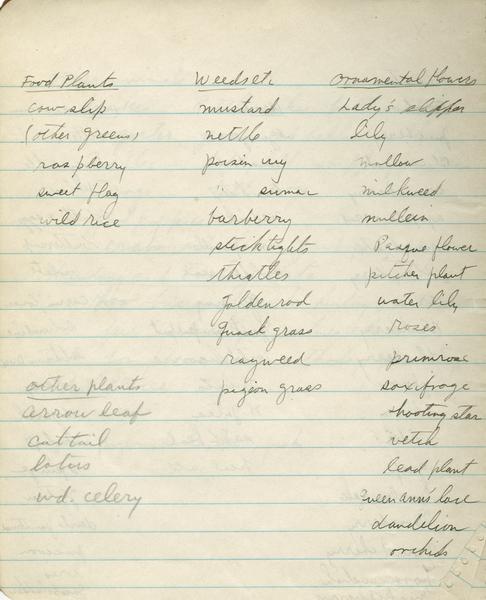 Food Plants
cowslip
(other greens)
raspberry
sweet flag
wild rice
other plants
arrow leaf
cattail
lotus
wd. celery
Weeds etc
mustard
nettle
poison ivy
" sumac
barberry
sticktights
thistles
Goldenrod
Quack grass
ragweed
pigeon grass
Ornamental flowers
Lady's slipper
lily
mallow
milkweed
mullein
Pasque flower
pitcher plant
water lily
roses
primrose
saxifrage
shooting star
vetch
lead plant
Queen ann's lace
dandelion
orchids